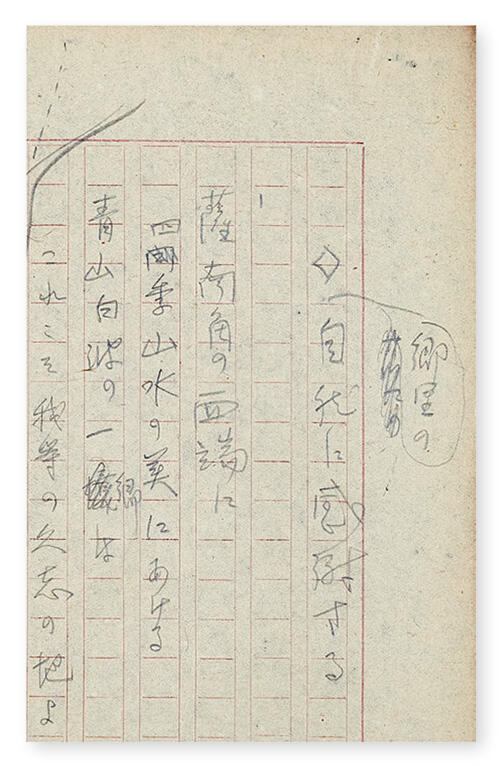 郷里の
◇自然に感謝する
薩南角の西端に
四季山水の美にあける
青山白波の一郷は
これこそ我等の久志の地よ